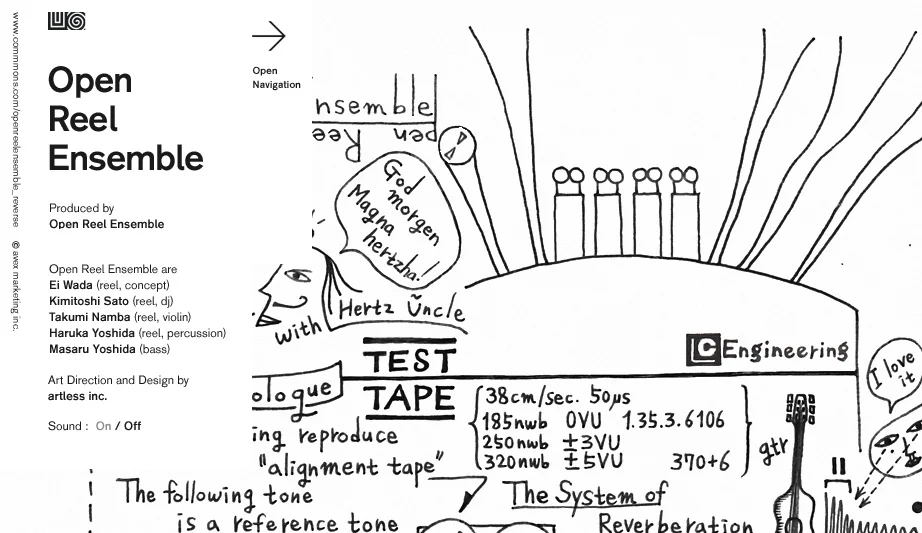 www.commmons.com/openreelensemble_reverse © avex marketing inc.
Open
Reel
Ensemble
Produced by
Open Reel Ensemble
Open Reel Ensemble are
Ei Wada (reel, concept)
Kimitoshi Sato (reel, dj)
Takumi Namba (reel, violin)
Haruka Yoshida (reel, percussion)
Masaru Yoshida (bass)
Art Direction and Design by
artless inc.
Sound : On / Off
Open
Navigation
nsemble
pen Ree
God
morgen
Magna
hertzha!
with Hertz Uncle
TEST
TAPE
LC Engineering
I love
it
ologue
38cm/sec. 50µs
185nwb 0VU 1.35.3.6106
250nwb ±3VU
320nwb ±5VU 370+6
gtr
ing reproduce
"alignment tape"
The following tone
is a reference tone
The System of
Reverberation